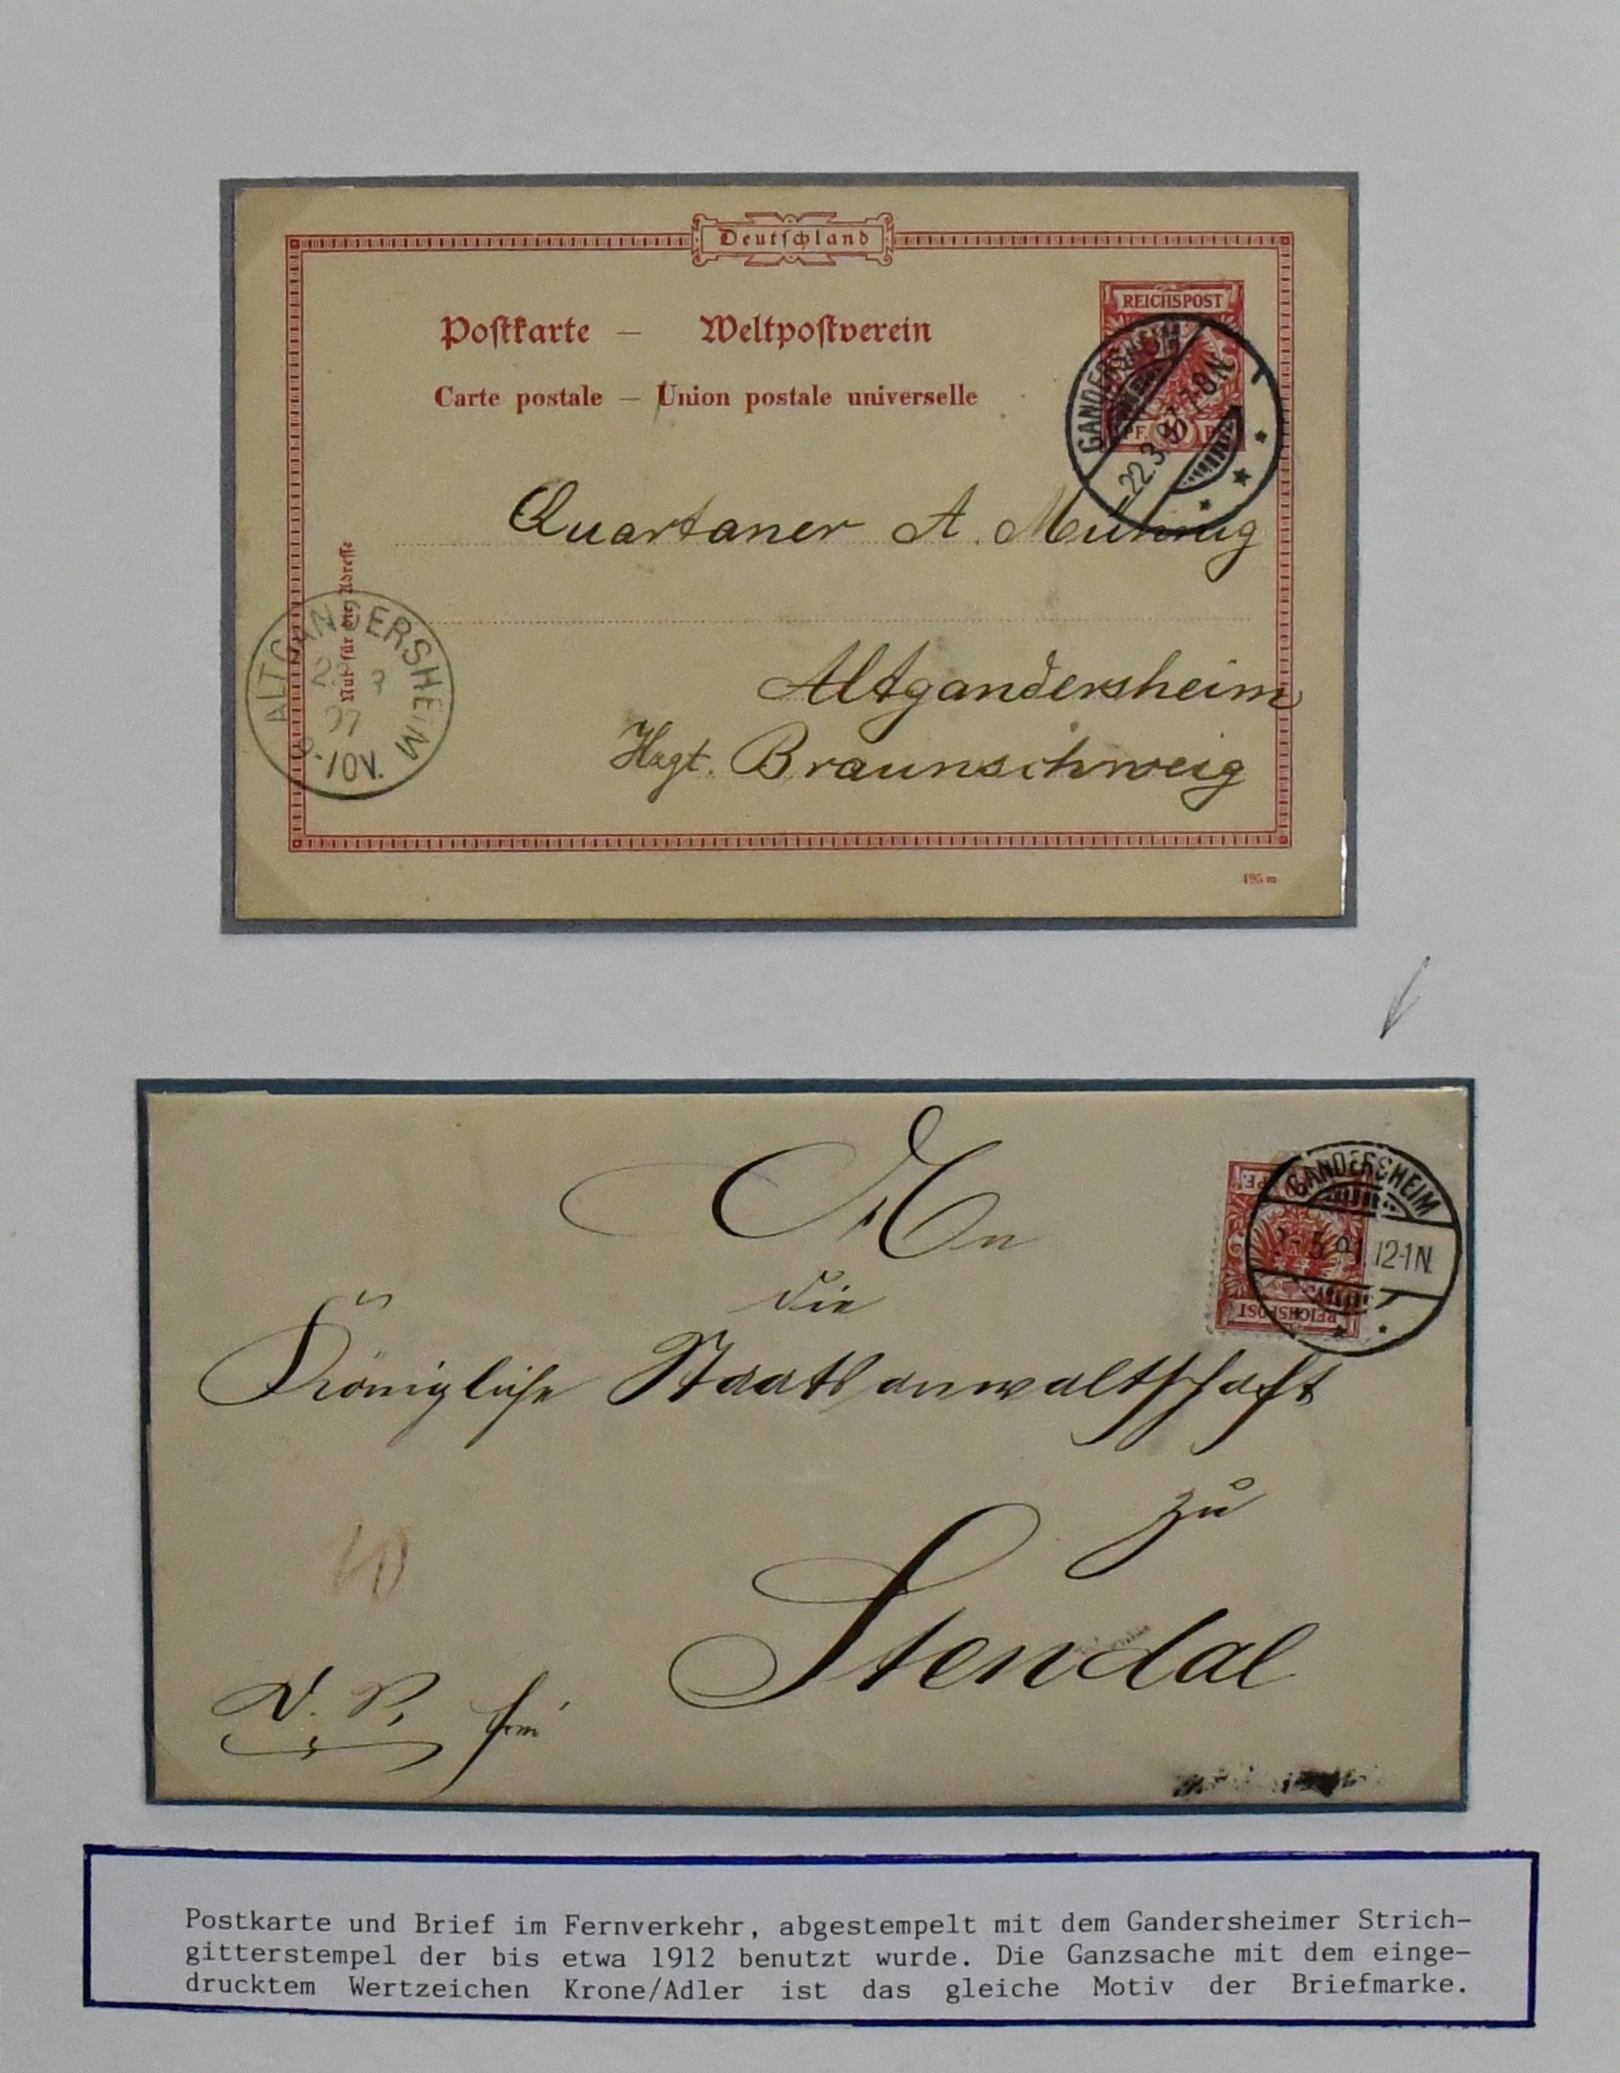 Deutschland
Postkarte – Weltpostverein
Carte postale – Union postale universelle
REICHSPOST
GANDERSHEIM
22.3.97 7-8N.
Quartaner A.
Nur für die Adresse
Altgandersheim
Hzgt. Braunschweig
ALTGANDERSHEIM
97
An
die
Königliche Staatsanwaltschaft
zu
Stendal
10
GANDERSHEIM
5 91. 12-1N.
REICHSPOST
Postkarte und Brief im Fernverkehr, abgestempelt mit dem Gandersheimer Strich-
gitterstempel der bis etwa 1912 benutzt wurde. Die Ganzsache mit dem einge-
drucktem Wertzeichen Krone/Adler ist das gleiche Motiv der Briefmarke.